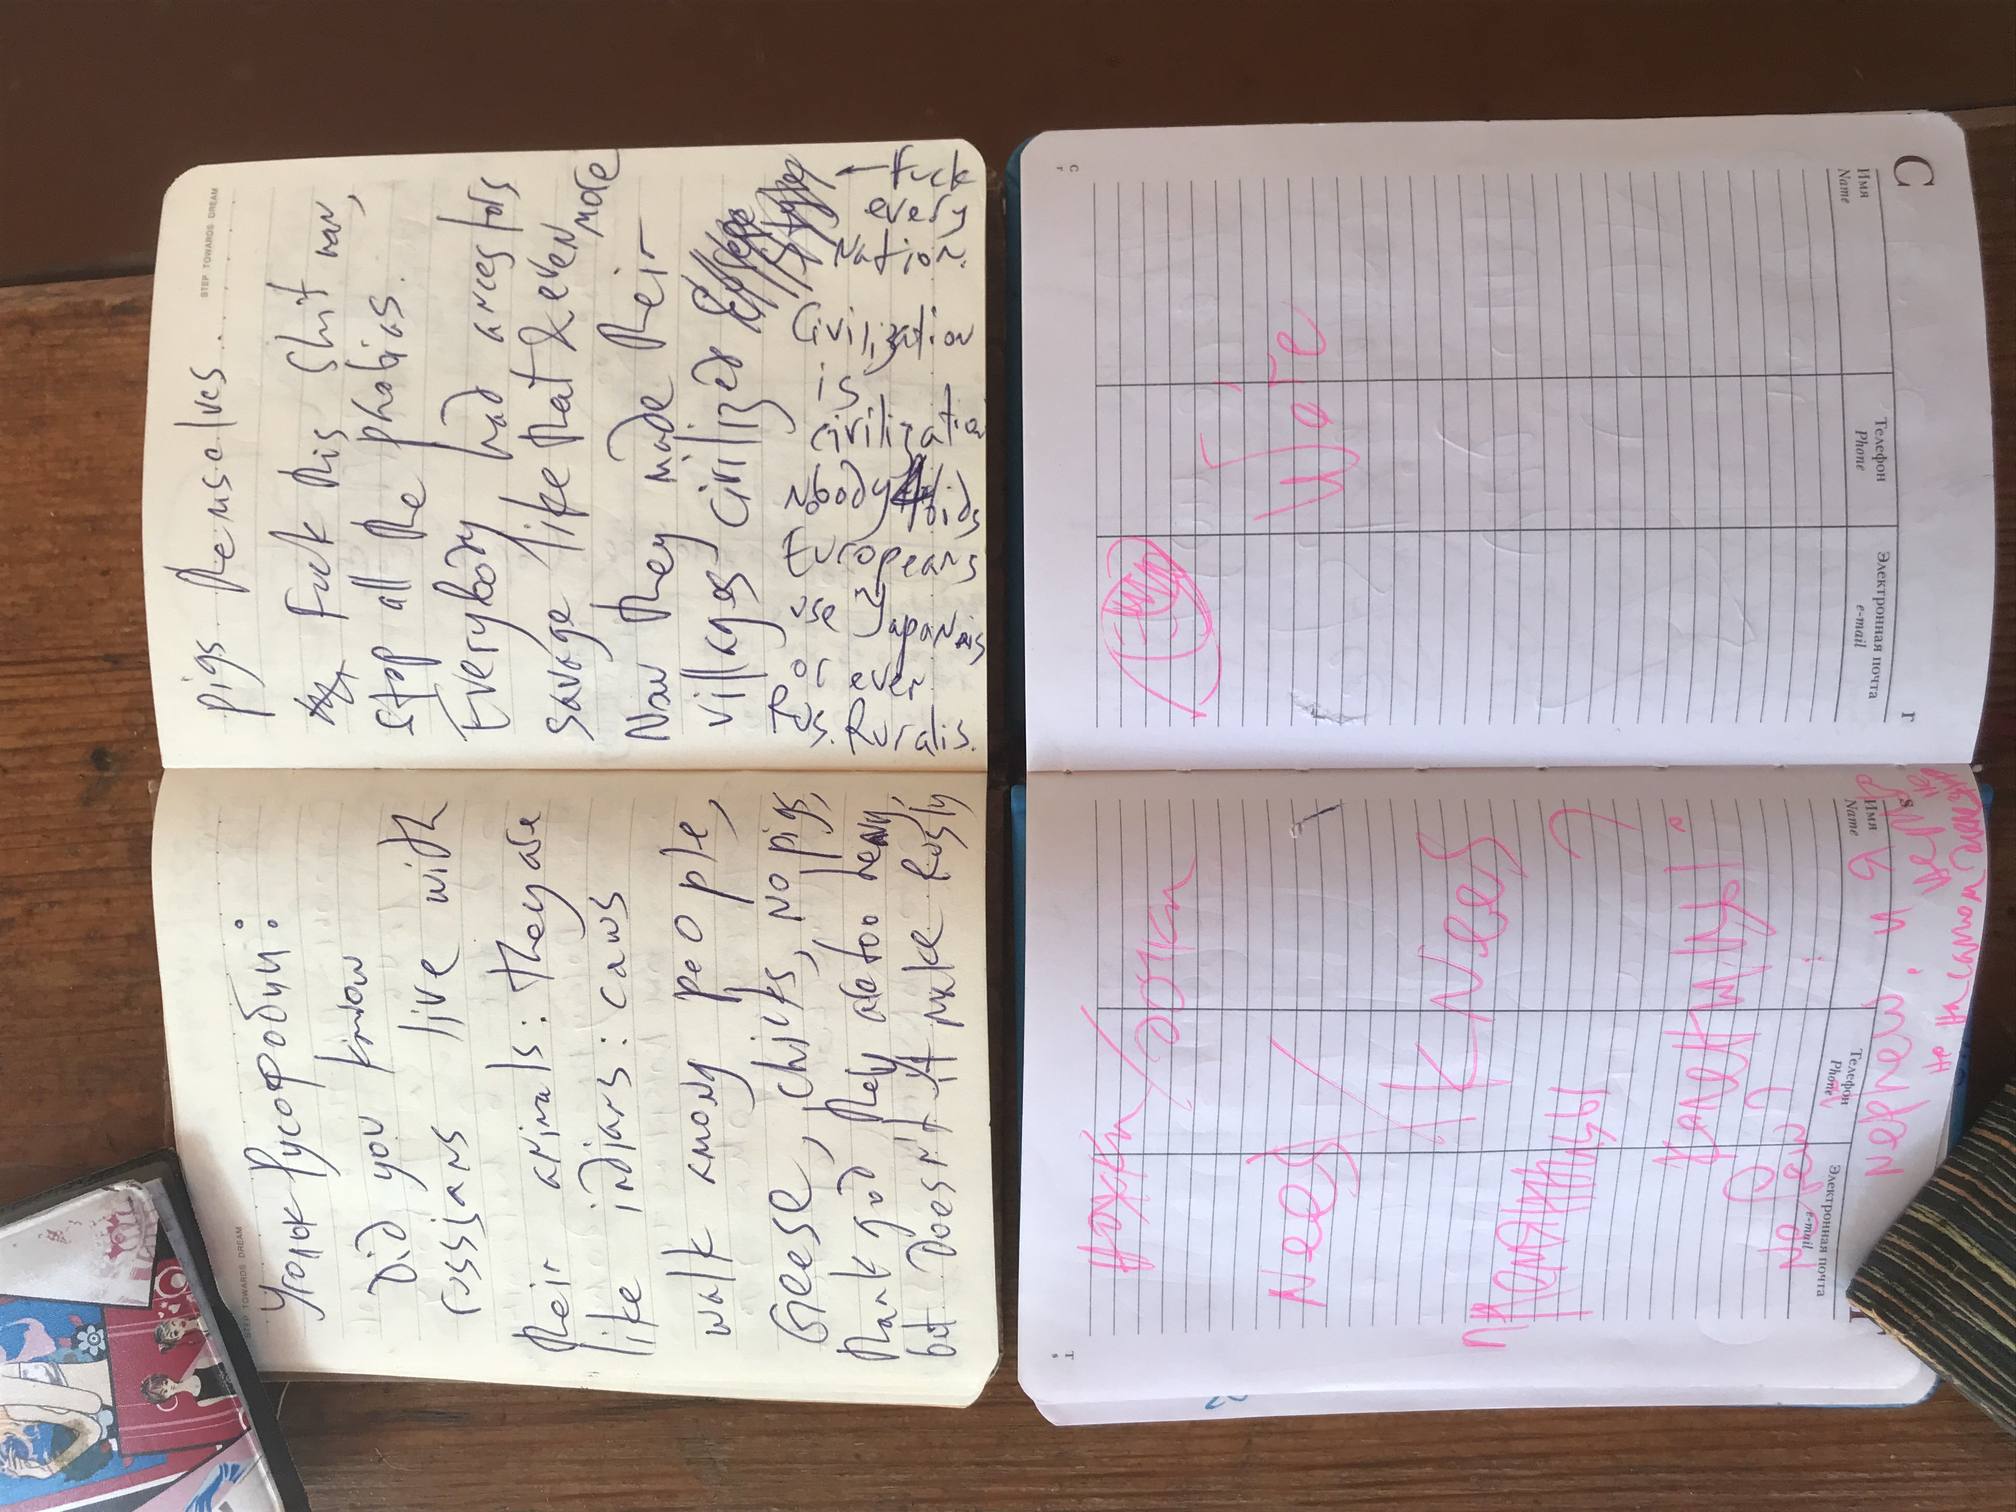 STEP TOWARDS DREAM
Уголок Русофобии:
Did you know
russians live with
their animals: they are
like indians: caws
walk among people,
Geese, chicks, no pigs,
thank god they are too heavy,
but Doesn't it make Rusly
STEP TOWARDS DREAM
pigs themselves..
fuck this shit man,
stop all the phobias.
Everybody had ancestors
savage like that & even more
Now they made their
villages civilized
← fuck
every
Nation.
Civilization
is
civilization
nobody
Europeans
use
Japaneis
or ever
Ruralis.
T
s
ножки/рожки
Need/Knees
пемянницы
далектицы!
No Pen?
перец. и я
не
на самом
Имя
Name
Телефон
Phone
Электронная почта
e-mail
C
r
More
Имя
Name
Телефон
Phone
Электронная почта
e-mail
С
Г